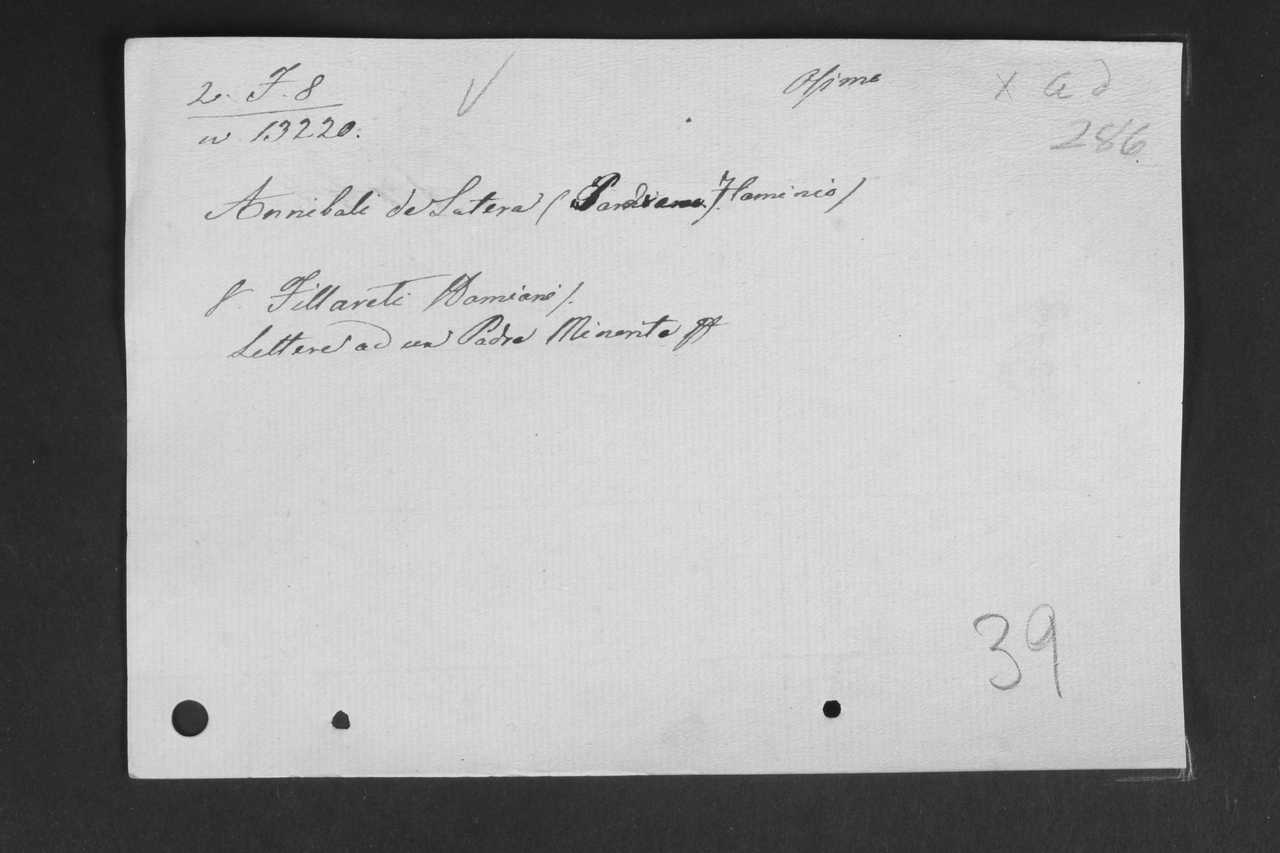 2. F. 8
Osimo
x ad
n 13220.
286
Annibali de Latera (Flaminio)
v. Fillareti Damiani).
Lettere ad un Padre Minorita
39